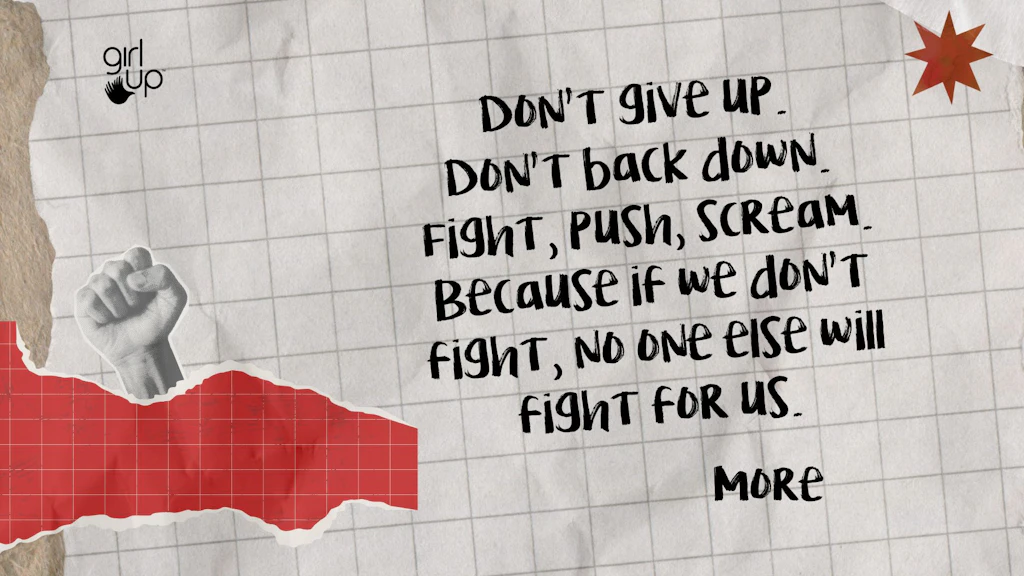 girl
up
DON'T give UP.
DON'T back down.
Fight, PUSh, SCReaM.
Because if we don'T
fighT, NO ONE elSe will
fighT FOR US.
MORe